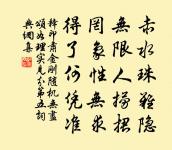 赤水珠難隐
無限人撈
罔象性無求
得了何凭准
釋印肅金剛隨機無盡
頌如理實見分第五詞
典網集